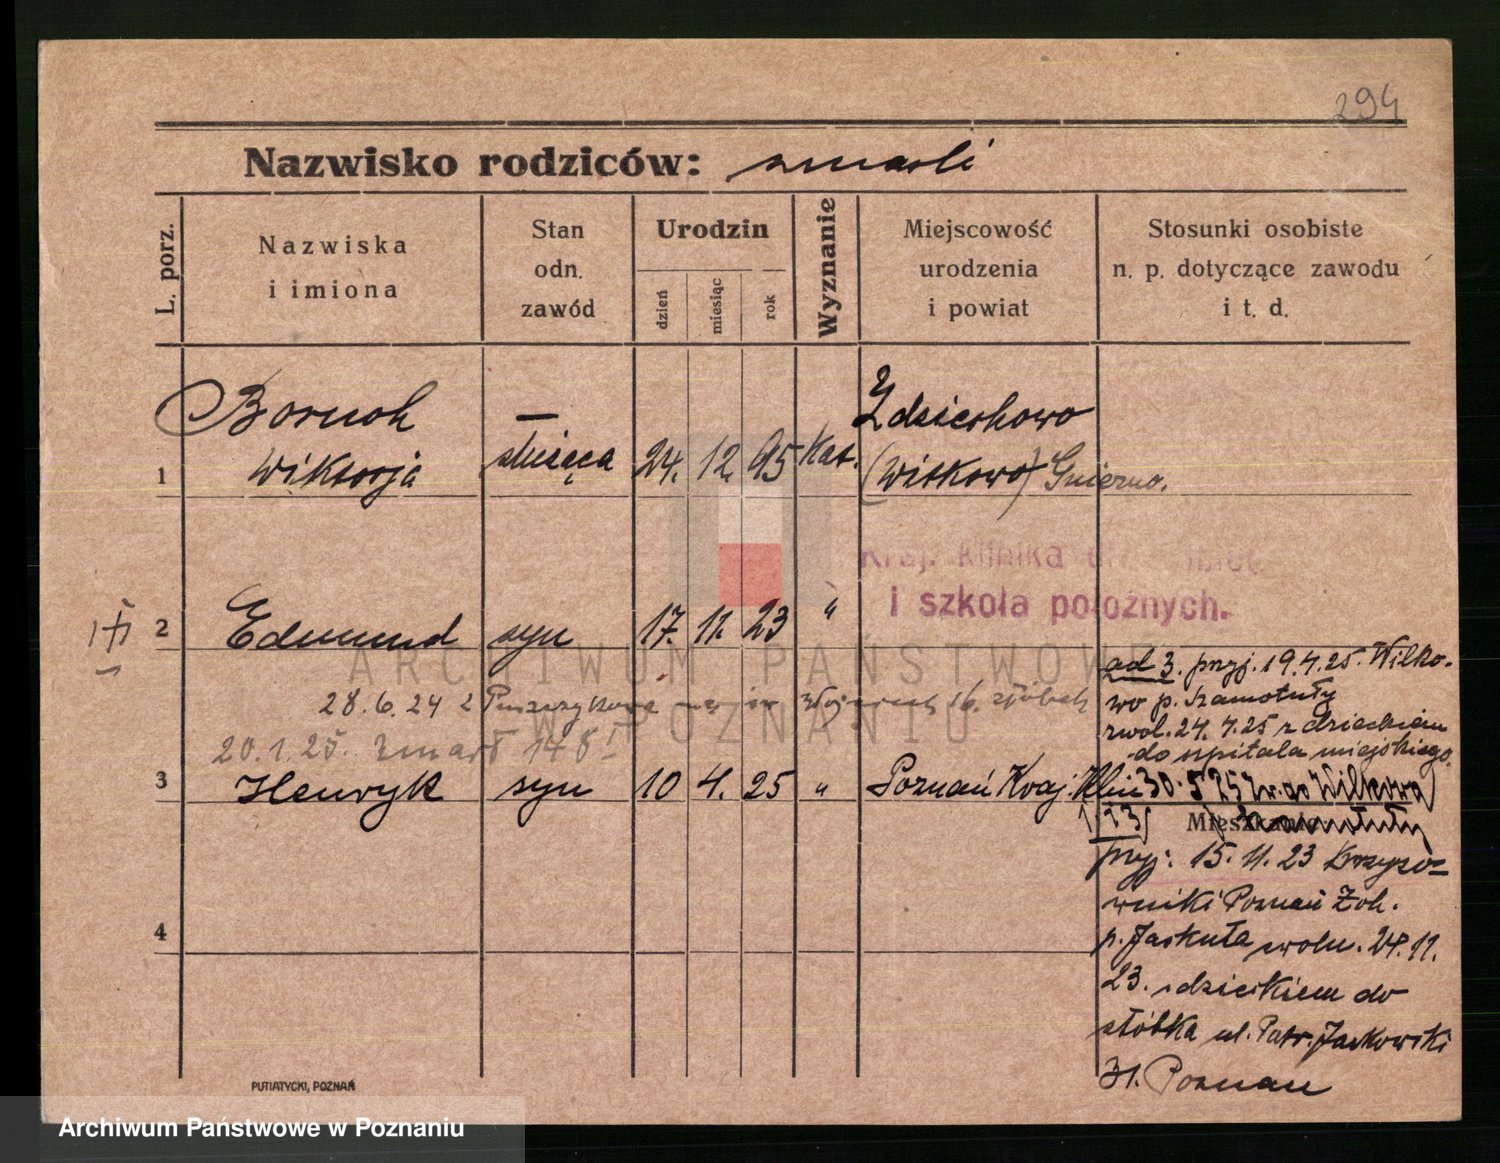 294
Nazwisko rodziców: zmarli
L. porz.
Nazwiska i imiona
Stan odn. zawód
Urodzin
dzień miesiąc rok
Wyznanie
Miejscowość urodzenia i powiat
Stosunki osobiste n. p. dotyczące zawodu i t. d.
Boruch —
1 Wiktorja służąca 24. 12. 95 Kat. Zdziechowo
(Witkowo) Gniezno.
Kraj. klinika dla kobiet
i szkoła położnych.
2 Edmund syn 17. 11. 23 "
ARCHIWUM PAŃSTWOWE
W POZNANIU
28.6.24 z Puszczykowa
20.1.25. zmarł
3 Henryk syn 10 4. 25 " Poznań Kraj. Klin
ad 3. przyj. 19.4.25. Wilko-
wo p. Szamotuły
zwol. 24.4.25 z dzieckiem
do szpitala miejskiego.
30.5 25 zw. do Wilkowa
Mieszkanie
przyj. 15. 11. 23 Krzyżo-
wniki Poznań Zch.
p. Jaskuła zwoln. 24. 11.
23. z dzieckiem do
żłóbka ul. Patr. Jackowski
31. Poznań
4
PUTIATYCKI, POZNAŃ
Archiwum Państwowe w Poznaniu